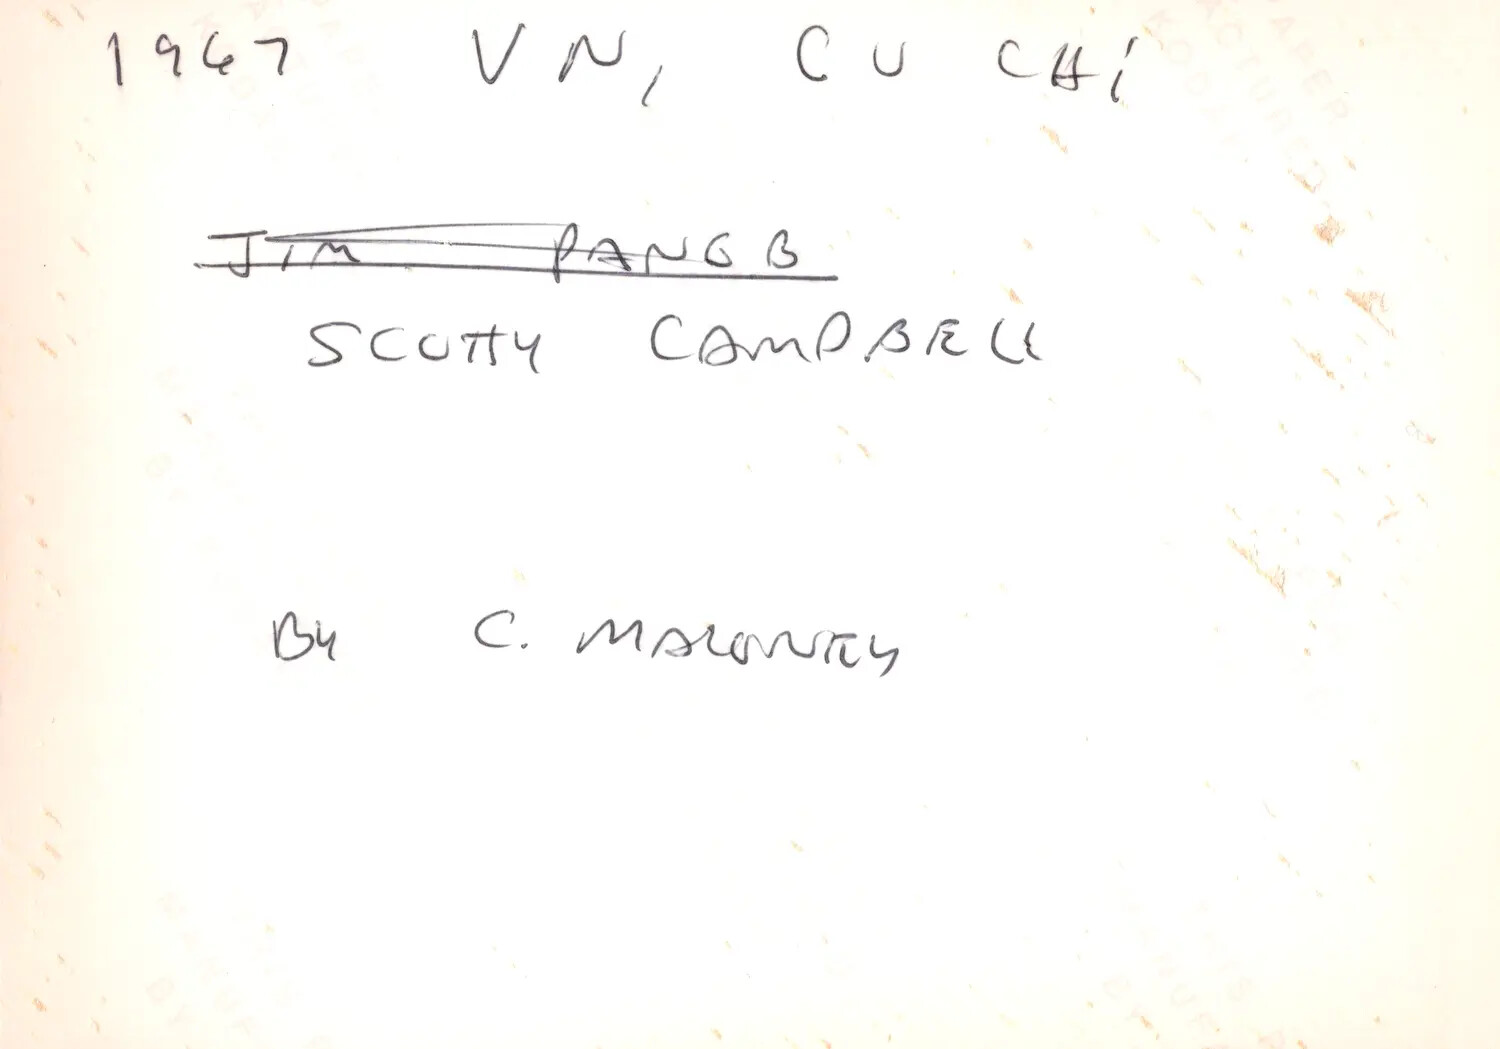 1967 VN, CU CHi
JIM PANGB
SCOTTY CAMPBELL
By C. MALONEY